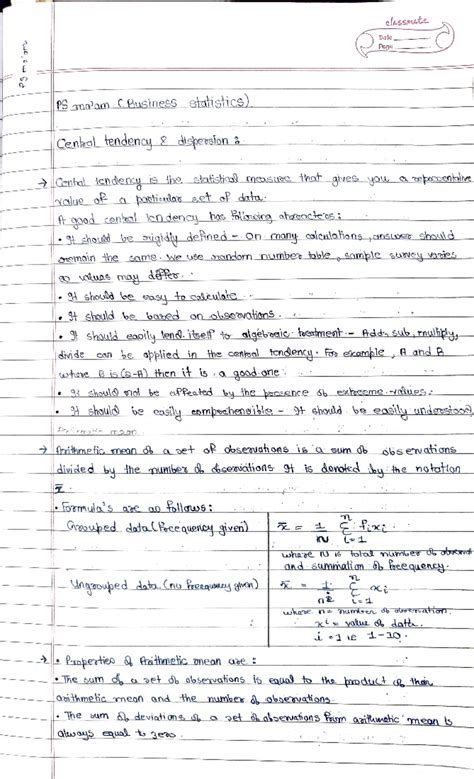 classmate
Date
Page
PS ma'am
PS ma'am (Business statistics)
Central tendency & dispersion :
→ Central tendency is the statistical measure that gives you a representative
value of a particular set of data.
A good central tendency has following characters :
• It should be rigidly defined - On many calculations, answer should
remain the same. We use random number table, sample survey varies
as values may differ.
• It should be easy to calculate.
• It should be based on observations.
• It should easily lend itself to algebraic treatment - Add, sub, multiply,
divide can be applied in the central tendency. For example, A and B
where B is (S-A) then it is a good one.
• It should not be affected by the presence of extreme values.
• It should be easily comprehensible - It should be easily understood
mean
→ Arithmetic mean of a set of observations is a sum of observations
divided by the number of observations. It is denoted by the notation
x̄.
• Formula's are as follows :
Grouped data (Frequency given) x̄ = 1/N Σ fixi n i=1
where N is total number of observed
and summation of frequency.
Ungrouped data (no frequency given) x̄ = 1/n Σ xi n i=1
where n = number of observation.
xi = value of data.
i = 1 ie 1-10.
→ • Properties of Arithmetic mean are :
• The sum of a set of observations is equal to the product of their
arithmetic mean and the number of observations.
• The sum of deviations of a set of observations from arithmetic mean is
always equal to zero.